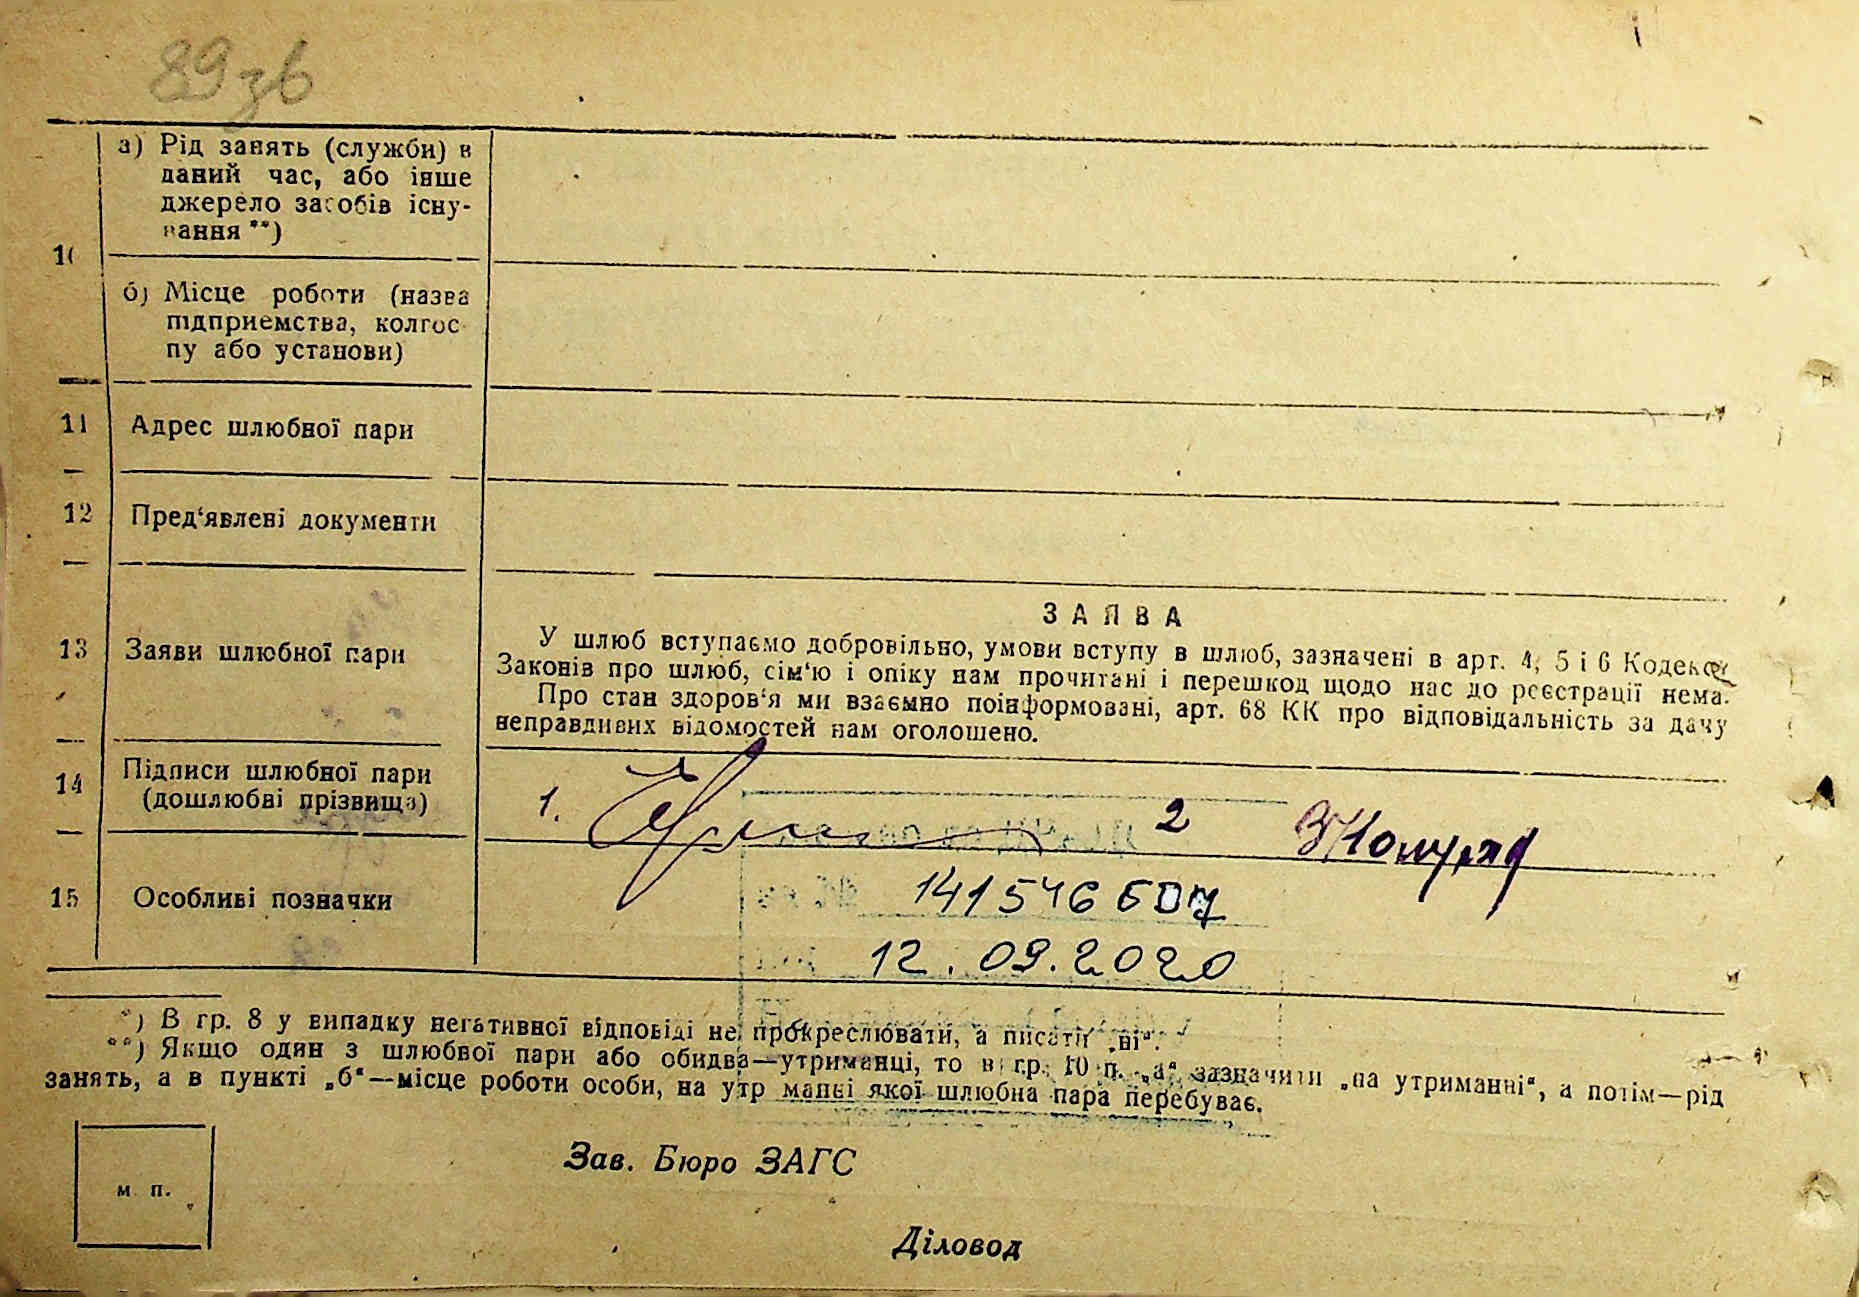 89зв
а) Рід занять (служби) в
даний час, або інше
джерело засобів існу-
вання **)
10
б) Місце роботи (назва
підприемства, колгос-
пу або установи)
11 Адрес шлюбної пари
12 Пред‘явлені документи
13 Заяви шлюбної пари
ЗАЯВА
У шлюб вступаємо добровільно, умови вступу в шлюб, зазначені в арт. 4, 5 і 6 Кодексу
Законів про шлюб, сім‘ю і опіку нам прочитані і перешкод щодо нас до реєстрації нема.
Про стан здоров‘я ми взаємно поінформовані, арт. 68 КК про відповідальність за дачу
неправдивих відомостей нам оголошено.
14 Підписи шлюбної пари
(дошлюбві прізвища)
1. 2
15 Особливі позначки
141546607
12.09.2020
*) В гр. 8 у випадку негативної відповіді не прокреслювати, а писати „ні“.
**) Якщо один з шлюбвої пари або обидва—утриманці, то в гр. 10 п. „а“ зазначити „на утриманні“, а потім—рід
занять, а в пункті „б“—місце роботи особи, на утр манні якої шлюбна пара перебуває.
Зав. Бюро ЗАГС
м. п.
Діловод